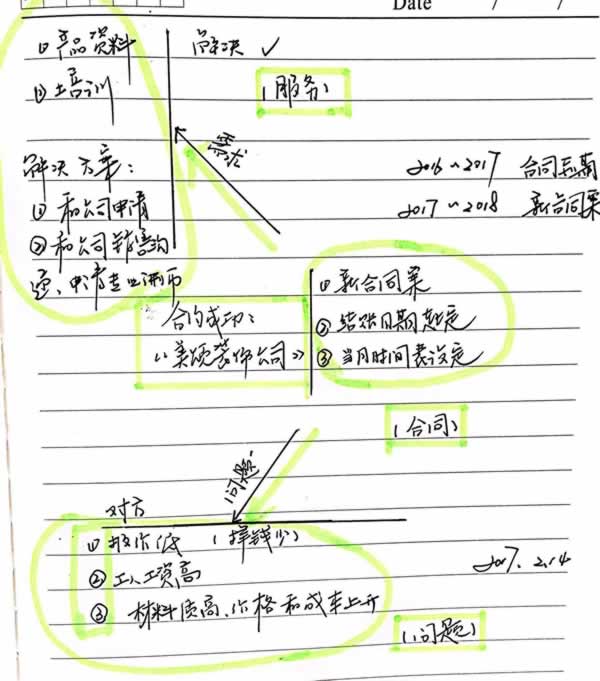 Date / /
① 产品资料
解决 ✓
② 培训
(服务)
需求
解决方案:
2016~2017 合同长期
① 和公司申请
2017~2018 新合同案
② 和公司销售沟
通、申请专业讲师
① 新合同案
合约成功:
② 结账日期超定
《美颂装饰公司》
③ 当月时间表设定
(合同)
(问题)
对方
① 报价低 (择钱少)
2017. 2.14
② 工人工资高
③ 材料质高、价格和成本上升
(问题)